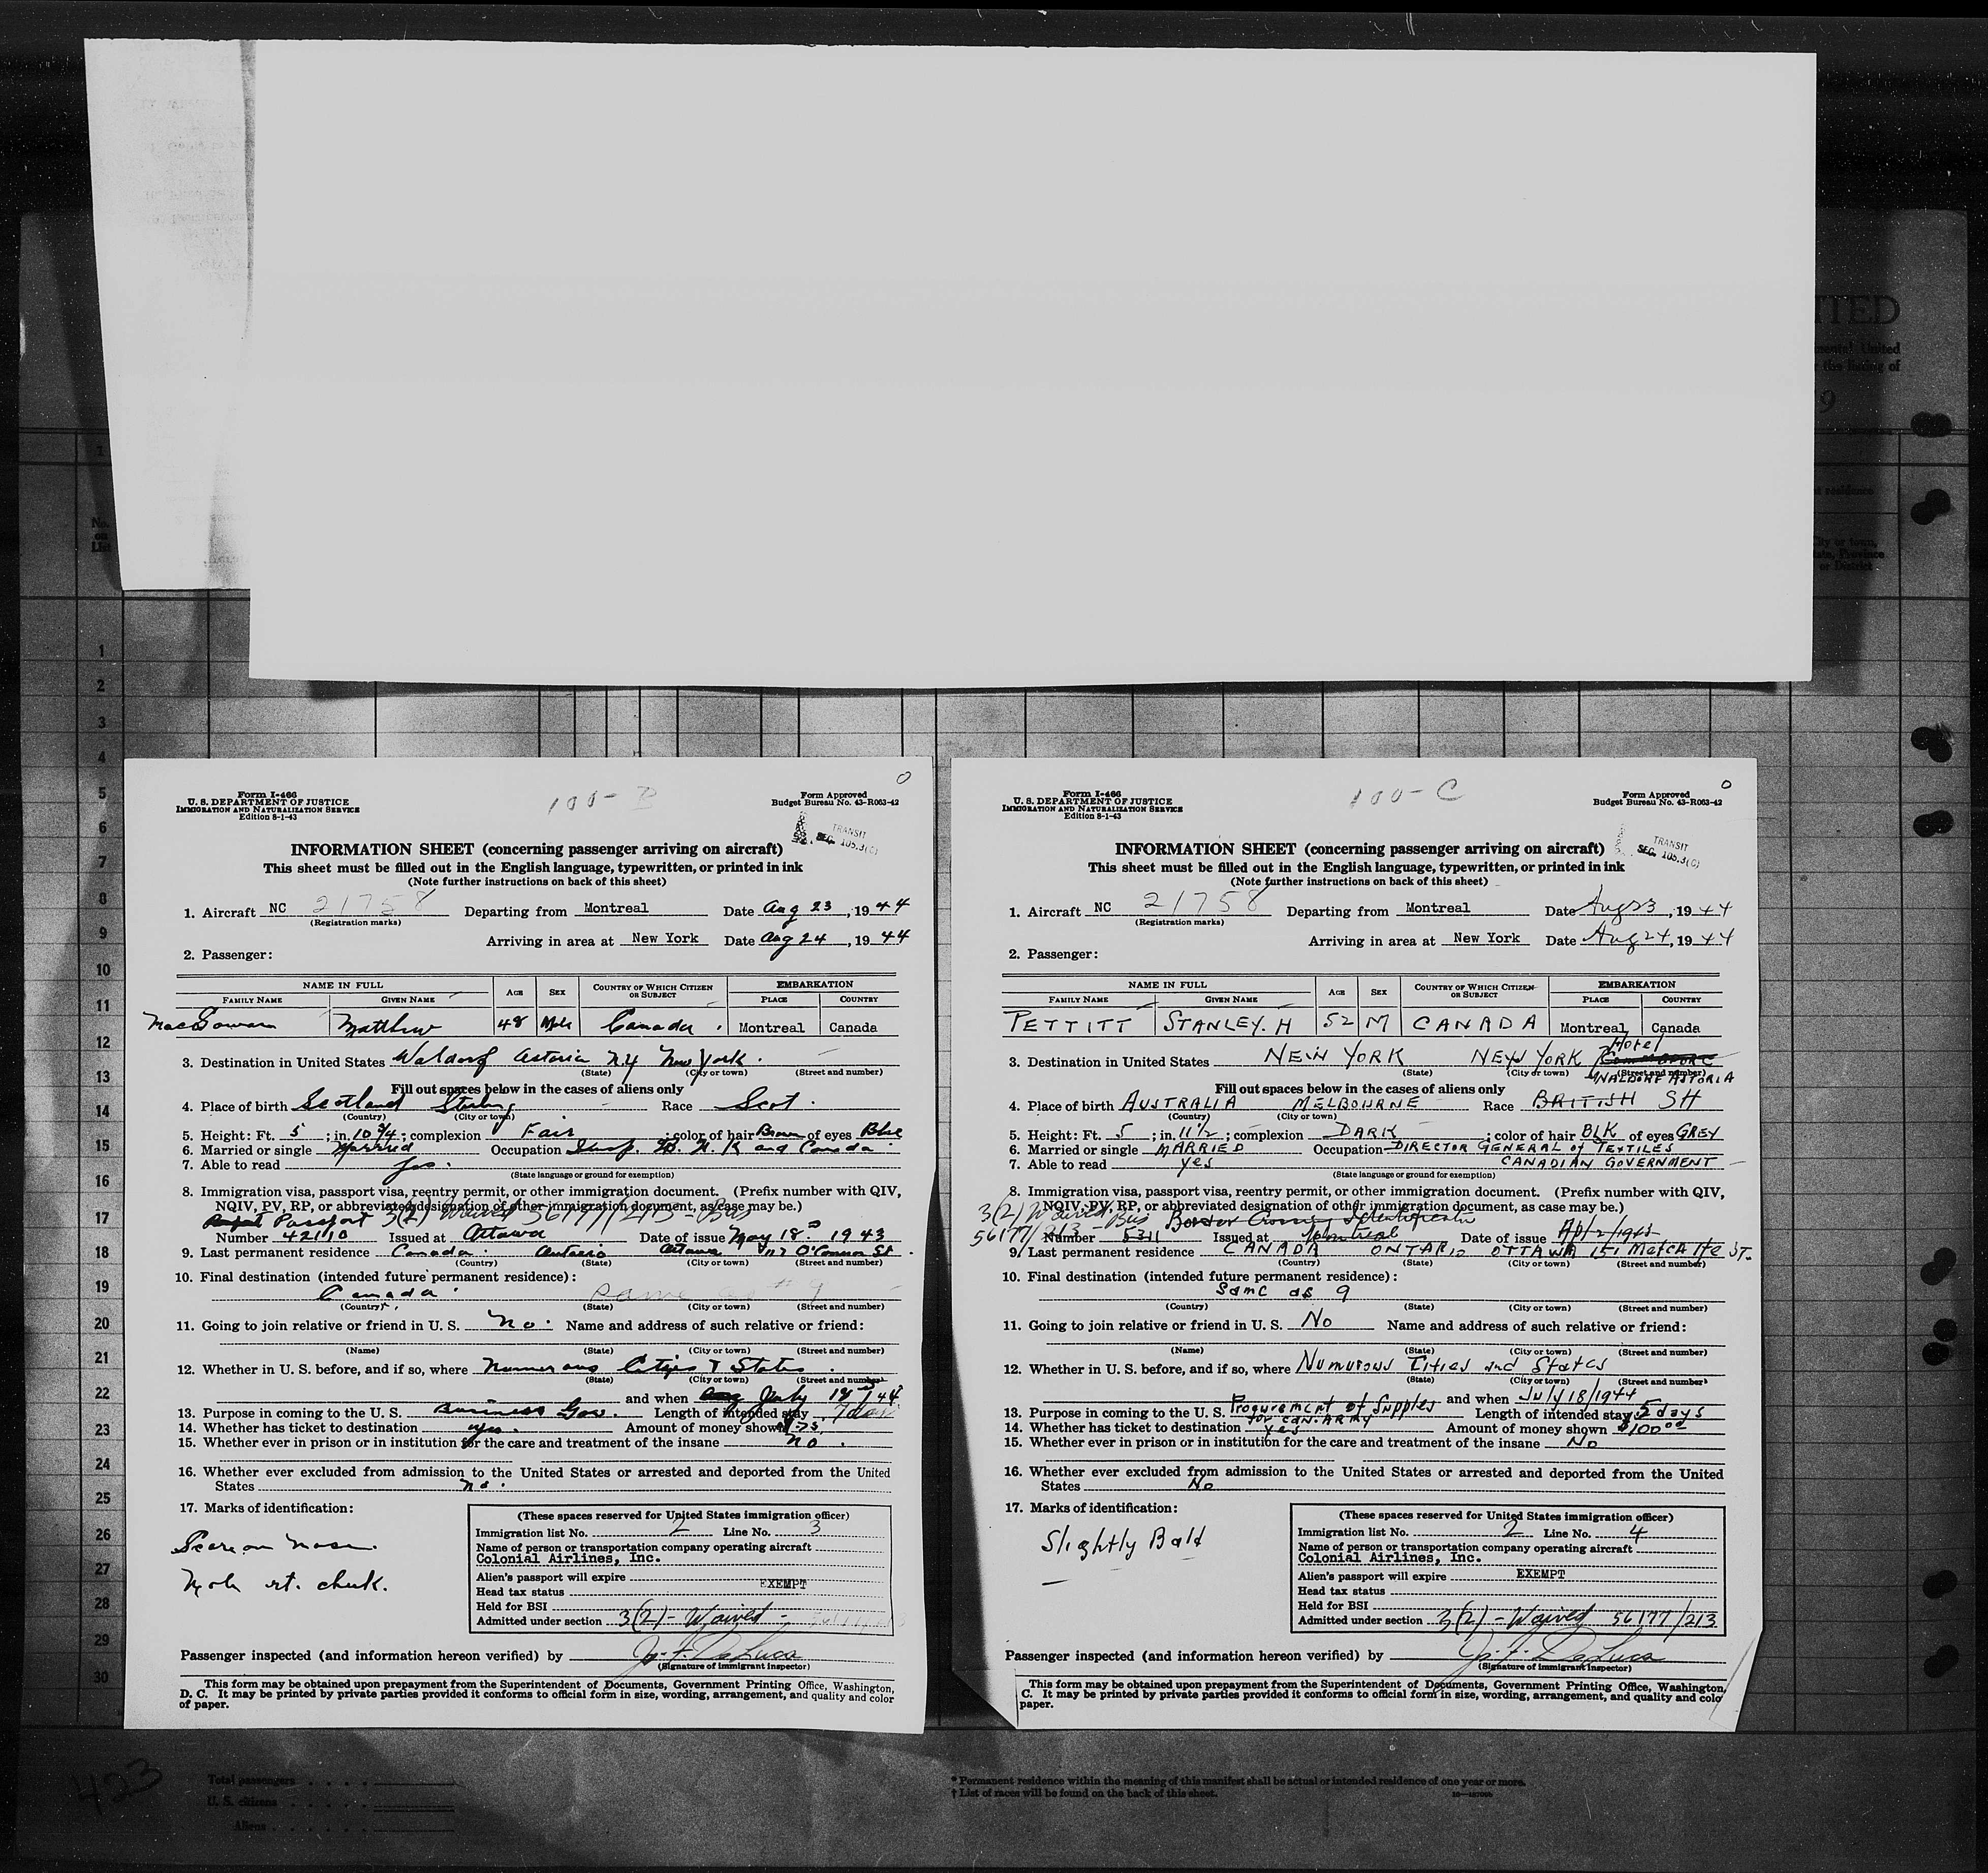 ITED
nental United
r the listing of
9
nt residence
No.
on
List
City or town,
State, Province
or District
1
2
3
4
5
6
7
8
9
10
11
12
13
14
15
16
17
18
19
20
21
22
23
24
25
26
27
28
29
30
Form I-466
U. S. DEPARTMENT OF JUSTICE
IMMIGRATION AND NATURALIZATION SERVICE
Edition 8-1-43
100-B
Form Approved
Budget Bureau No. 43-R063-42
TRANSIT
SEC. 105.3(C)
INFORMATION SHEET (concerning passenger arriving on aircraft)
This sheet must be filled out in the English language, typewritten, or printed in ink
(Note further instructions on back of this sheet)
1. Aircraft NC 21758 Departing from Montreal Date Aug 23, 1944
(Registration marks)
Arriving in area at New York Date Aug 24, 1944
2. Passenger:
NAME IN FULL AGE SEX COUNTRY OF WHICH CITIZEN OR SUBJECT EMBARKATION
FAMILY NAME GIVEN NAME PLACE COUNTRY
MacGowan Matthew 48 Male Canada Montreal Canada
3. Destination in United States Waldorf Astoria N.Y New York.
(State) (City or town) (Street and number)
Fill out spaces below in the cases of aliens only
4. Place of birth Scotland Sterling Race Scot.
(Country) (City or town)
5. Height: Ft. 5; in. 10 3/4; complexion Fair; color of hair Brown of eyes Blue
6. Married or single Married Occupation U.K and Canada
7. Able to read Yes.
(State language or ground for exemption)
8. Immigration visa, passport visa, reentry permit, or other immigration document. (Prefix number with QIV,
NQIV, PV, RP, or abbreviated designation of other immigration document, as case may be.)
Passport 3(2) Waived 56177/213 - Bus
Number 42110 Issued at Ottawa Date of issue May 18 1943
9. Last permanent residence Canada Ontario Ottawa O'Connor St.
(Country) (State) (City or town) (Street and number)
10. Final destination (intended future permanent residence):
Canada same as #9
(Country) (State) (City or town) (Street and number)
11. Going to join relative or friend in U. S. no. Name and address of such relative or friend:
(Name) (State) (City or town) (Street and number)
12. Whether in U. S. before, and if so, where Numerous Cities & States
(State) (City or town) (Street and number)
and when July 18 /44
13. Purpose in coming to the U. S. Business Gov. Length of intended stay 7 days
14. Whether has ticket to destination yes. Amount of money shown $75.
15. Whether ever in prison or in institution for the care and treatment of the insane no.
16. Whether ever excluded from admission to the United States or arrested and deported from the United
States no.
17. Marks of identification:
Scar on nose.
Mole rt. cheek.
(These spaces reserved for United States immigration officer)
Immigration list No. 2 Line No. 3
Name of person or transportation company operating aircraft
Colonial Airlines, Inc.
Alien's passport will expire
EXEMPT
Head tax status
Held for BSI
Admitted under section 3(2) - Waived -
Passenger inspected (and information hereon verified) by J. F. DeLuca
(Signature of immigrant inspector)
This form may be obtained upon prepayment from the Superintendent of Documents, Government Printing Office, Washington,
D. C. It may be printed by private parties provided it conforms to official form in size, wording, arrangement, and quality and color
of paper.
Form I-466
U. S. DEPARTMENT OF JUSTICE
IMMIGRATION AND NATURALIZATION SERVICE
Edition 8-1-43
100-C
Form Approved
Budget Bureau No. 43-R063-42
TRANSIT
SEC. 105.3(C)
INFORMATION SHEET (concerning passenger arriving on aircraft)
This sheet must be filled out in the English language, typewritten, or printed in ink
(Note further instructions on back of this sheet)
1. Aircraft NC 21758 Departing from Montreal Date Aug 23, 1944
(Registration marks)
Arriving in area at New York Date Aug 24, 1944
2. Passenger:
NAME IN FULL AGE SEX COUNTRY OF WHICH CITIZEN OR SUBJECT EMBARKATION
FAMILY NAME GIVEN NAME PLACE COUNTRY
PETTITT STANLEY. H 52 M CANADA Montreal Canada
3. Destination in United States NEW YORK NEW YORK Hotel Commodore
(State) (City or town) (Street and number)
WALDORF ASTORIA
Fill out spaces below in the cases of aliens only
4. Place of birth AUSTRALIA MELBOURNE Race BRITISH SH
(Country) (City or town)
5. Height: Ft. 5; in. 11 1/2; complexion DARK; color of hair BLK of eyes GREY
6. Married or single MARRIED Occupation DIRECTOR GENERAL of TEXTILES
7. Able to read Yes CANADIAN GOVERNMENT
(State language or ground for exemption)
8. Immigration visa, passport visa, reentry permit, or other immigration document. (Prefix number with QIV,
NQIV, PV, RP, or abbreviated designation of other immigration document, as case may be.)
3(2) Waived Bus Border Crossing Identification
56177/213 - Number 5311 Issued at Montreal Date of issue
9. Last permanent residence CANADA ONTARIO OTTAWA 151 Metcalfe ST.
(Country) (State) (City or town) (Street and number)
10. Final destination (intended future permanent residence):
Same as 9
(Country) (State) (City or town) (Street and number)
11. Going to join relative or friend in U. S. No Name and address of such relative or friend:
(Name) (State) (City or town) (Street and number)
12. Whether in U. S. before, and if so, where Numurous Cities and States
(State) (City or town) (Street and number)
and when July 18/1944
13. Purpose in coming to the U. S. Procurement of Supples Length of intended stay 5 days
for CDN. ARMY
14. Whether has ticket to destination Yes Amount of money shown $100.00
15. Whether ever in prison or in institution for the care and treatment of the insane No
16. Whether ever excluded from admission to the United States or arrested and deported from the United
States No
17. Marks of identification:
Slightly Bald
(These spaces reserved for United States immigration officer)
Immigration list No. 2 Line No. 4
Name of person or transportation company operating aircraft
Colonial Airlines, Inc.
Alien's passport will expire EXEMPT
Head tax status
Held for BSI
Admitted under section 3(2) - Waived 56177/213
Passenger inspected (and information hereon verified) by J. F. DeLuca
(Signature of immigrant inspector)
This form may be obtained upon prepayment from the Superintendent of Documents, Government Printing Office, Washington,
C. It may be printed by private parties provided it conforms to official form in size, wording, arrangement, and quality and colo
paper.
423
Total passengers
U. S. citizens
Aliens
* Permanent residence within the meaning of this manifest shall be actual or intended residence of one year or more.
† List of races will be found on the back of this sheet.